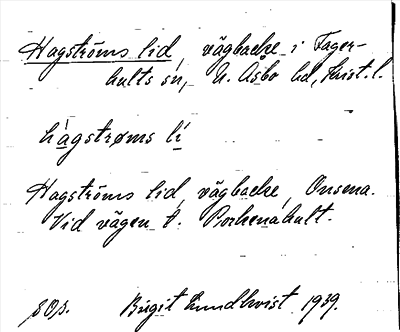 Hagströms lid, vägbacke i Fager-
hults sn, N. Åsbo hd, Krist. l.
hágstrøms lí
Hagströms lid, vägbacke, Onsena.
Vid vägen t. Porkenahult.
sOp. Birgit Lundkvist 1939.